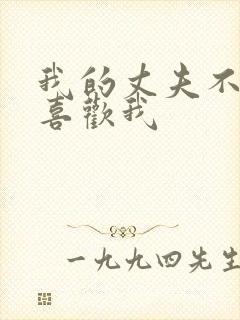 我的丈夫不
喜歡我
一九九四先生